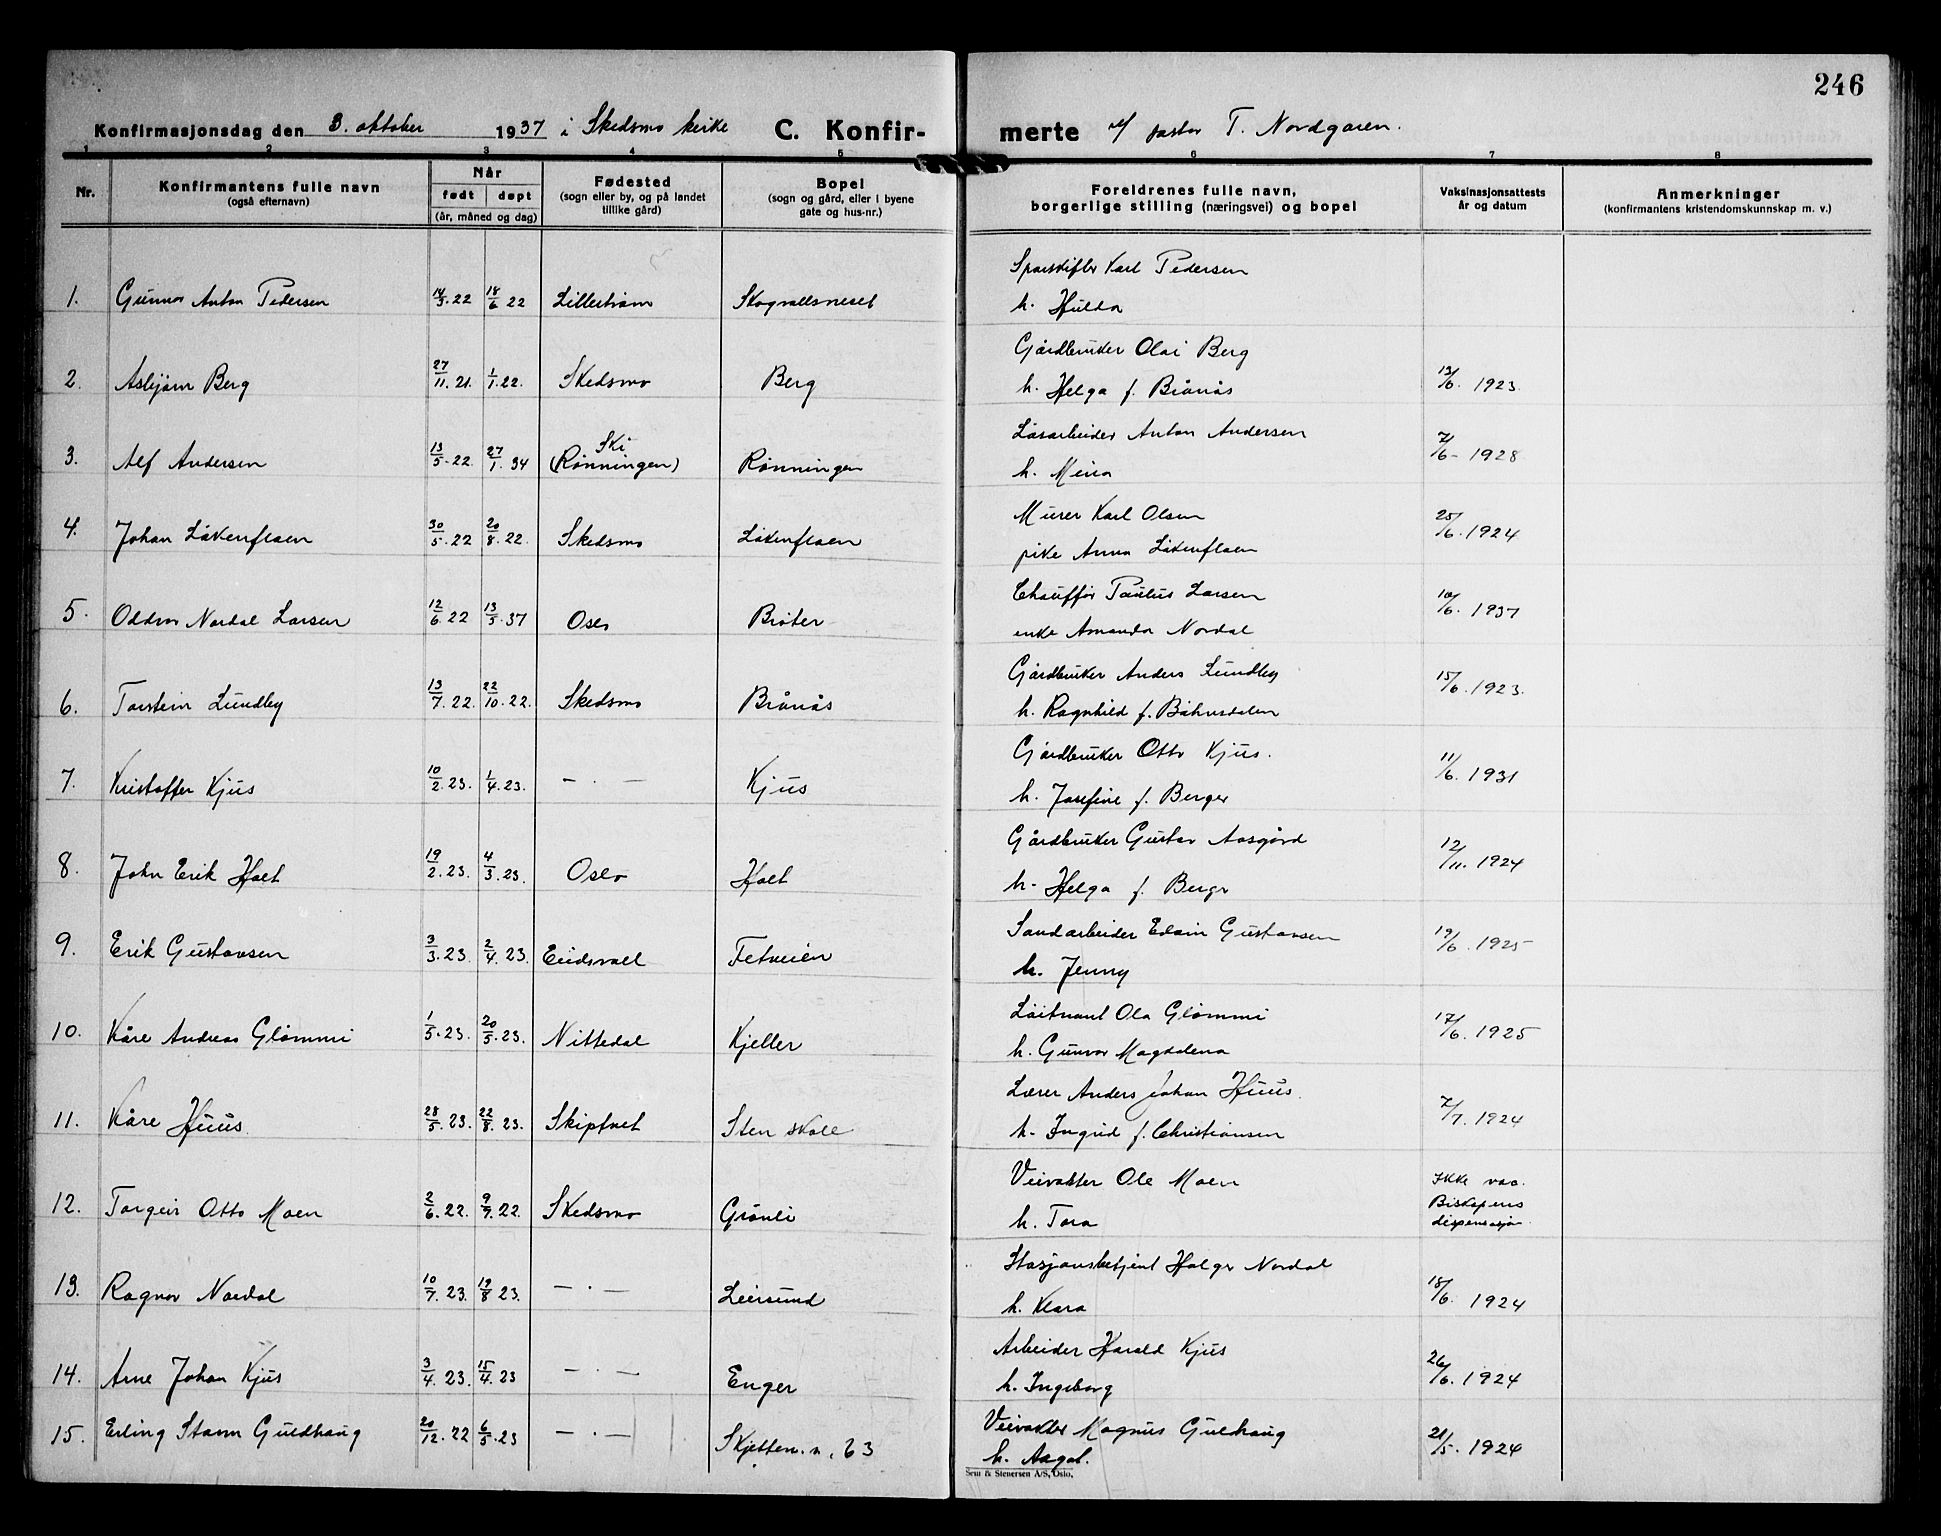 246
Konfirmasjonsdag den 3. oktober 1937 i Skedsmo kirke C. Konfir- merte v/ pastor T. Nordgaren.
1 2 3 4 5 6 7 8
Nr. Konfirmantens fulle navn (også efternavn) Når født døpt (år, måned og dag) Fødested (sogn eller by, og på landet tillike gård) Bopel (sogn og gård, eller i byene gate og hus-nr.) Foreldrenes fulle navn, borgerlige stilling (næringsvei) og bopel Vaksinasjonsattests år og datum Anmerkninger (konfirmantens kristendomskunnskap m. v.)
1. Gunnar Anton Pedersen 14/3.22 18/6 22 Lillestrøm Skogvollsneset Karl Pedersen
h. Hulda
2. Asbjørn Berg 27/11.21. 1/1.22. Skedsmo Berg Gårdbruker Olai Berg 13/6. 1923
h. Helga f. Brånås
3. Alf Andersen 13/5.22. 27/1.34 Ski (Rønningen) Rønningen Løsarbeider Anton Andersen 7/6- 1928
h. Mina
4. Johan Låkenflaen 30/5.22 20/8.22. Skedsmo Låkenflaen Murer Karl Olsen 25/6.1924
pike Anna Låkenflaen
5. Oddvar Nordal Larsen 12/6.22 13/5.37 Oslo Bråter Chauffør Paulus Larsen 10/6. 1937
enke Amanda Nordal
6. Torstein Lundby 13/7.22. 22/10.22. Skedsmo Brånås Gårdbruker Anders Lundby 15/6.1923.
h. Ragnhild f. Båhusdalen
7. Kristoffer Kjus 10/2.23. 1/4.23. — . — Kjus Gårdbruker Otto Kjus. 11/6.1931
h. Josefine f. Berger
8. John Erik Holt 19/2.23. 4/3.23. Oslo Holt Gårdbruker Gustav Aasgård 12/11.1924
h. Helga f. Berger
9. Erik Gustavsen 3/3.23. 2/4.23. Eidsvoll Fetveien Sandarbeider Edvin Gustavsen 19/6.1925
h. Jenny
10. Kåre Andreas Glømmi 1/5.23. 20/5.23. Nittedal Kjeller Løitnant Ola Glømmi 17/6.1925
h. Gunvor Magdalena
11. Kåre Huus. 28/5.23. 22/8.23. Skiptvet Sten skole Lærer Anders Johan Huus. 7/7.1924
h. Ingrid f. Christiansen
12. Torgeir Otto Moen 2/6.22. 9/7.22. Skedsmo Grønli Veivokter Ole Moen Ikke vac. Biskopens dispensasjon
h. Tora
13. Ragnar Nordal 10/7.23. 19/8 23. — . — Leirsund Stasjonsbetjent Holger Nordal 18/6. 1924
h. Klara
14. Arne Johan Kjus 3/4.23. 15/4.23 — . — Enger Arbeider Harald Kjus 26/6.1924
h. Ingeborg
15. Erling Stamm Guldhaug 20/12.22 6/5.23 — . — Skjetten. n. 63 Veivokter Magnus Guldhaug 21/5. 1924
h. Aagot.
Sem & Stenersen A/S, Oslo.